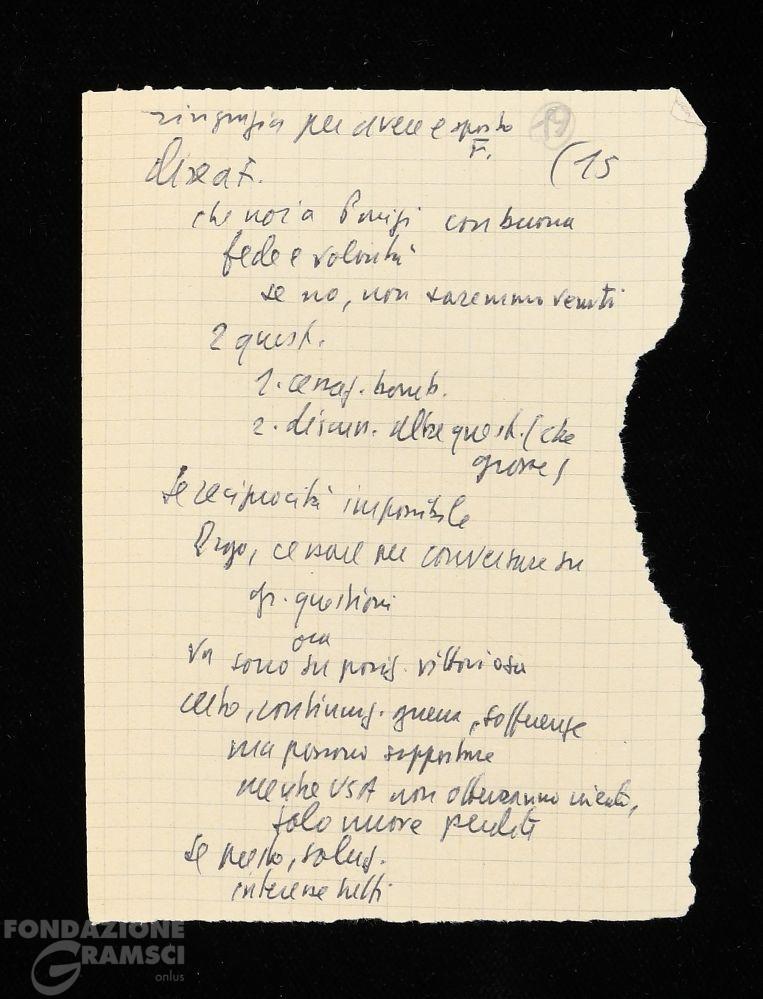 ringrazia per avere esposto 19
F. (15
disse a F.
che noi a Parigi con buona
fede e volontà
se no, non saremmo venuti
2 quest.
1. cessaz. bomb.
2. discuss. altre quest. (che
grosse)
se reciprocità impossibile
Dopo, cessare per conversare su
gr. questioni
ora
VN sono su posiz. vittoriosa
certo, continuaz. guerra, sofferenze
ma possono sopportare
mentre USA non otterranno niente,
solo nuove perdite
se presto, soluz.
interesse tutti
FONDAZIONE
GRAMSCI
onlus